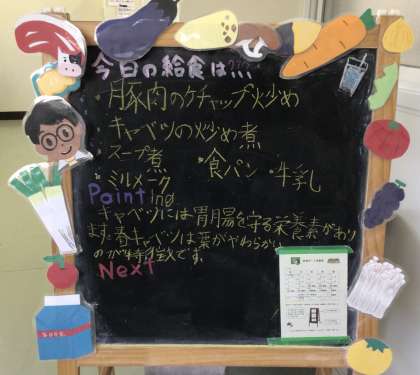 今日の給食は???
・豚肉のケチャップ炒め
・キャベツの炒め煮
・スープ煮 ・食パン ・牛乳
・ミルメーク
Pointing
キャベツには胃腸を守る栄養素があり
ます。春キャベツは葉がやわらかい
のが特徴です。
Next